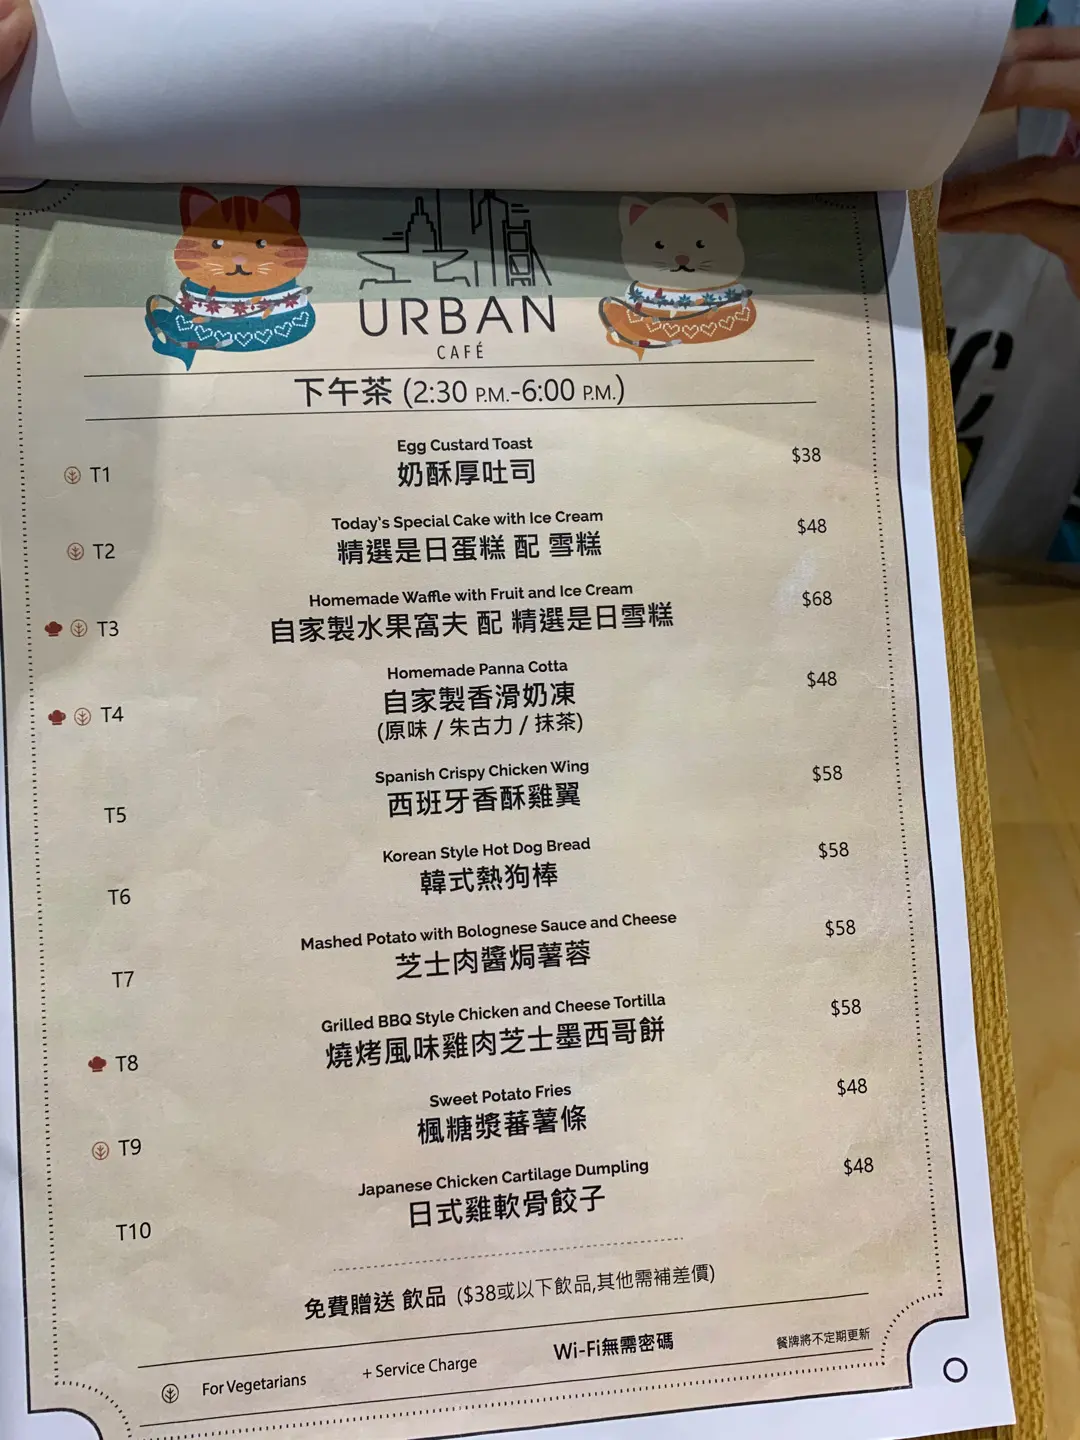 URBAN
CAFÉ
下午茶 (2:30 P.M.-6:00 P.M.)
T1
Egg Custard Toast
奶酥厚吐司
$38
T2
Today's Special Cake with Ice Cream
精選是日蛋糕 配 雪糕
$48
T3
Homemade Waffle with Fruit and Ice Cream
自家製水果窩夫 配 精選是日雪糕
$68
T4
Homemade Panna Cotta
自家製香滑奶凍
(原味 / 朱古力 / 抹茶)
$48
T5
Spanish Crispy Chicken Wing
西班牙香酥雞翼
$58
T6
Korean Style Hot Dog Bread
韓式熱狗棒
$58
T7
Mashed Potato with Bolognese Sauce and Cheese
芝士肉醬焗薯蓉
$58
T8
Grilled BBQ Style Chicken and Cheese Tortilla
燒烤風味雞肉芝士墨西哥餅
$58
T9
Sweet Potato Fries
楓糖漿蕃薯條
$48
T10
Japanese Chicken Cartilage Dumpling
日式雞軟骨餃子
$48
免費贈送 飲品 ($38或以下飲品,其他需補差價)
For Vegetarians
+ Service Charge
Wi-Fi無需密碼
餐牌將不定期更新